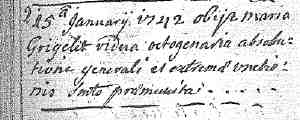 15ᵃ January 1742 obijt maria
Grigelit vidua octogenaria absolu-
tione generali et extrema unctio-
nis Smto præmunita . . . . .